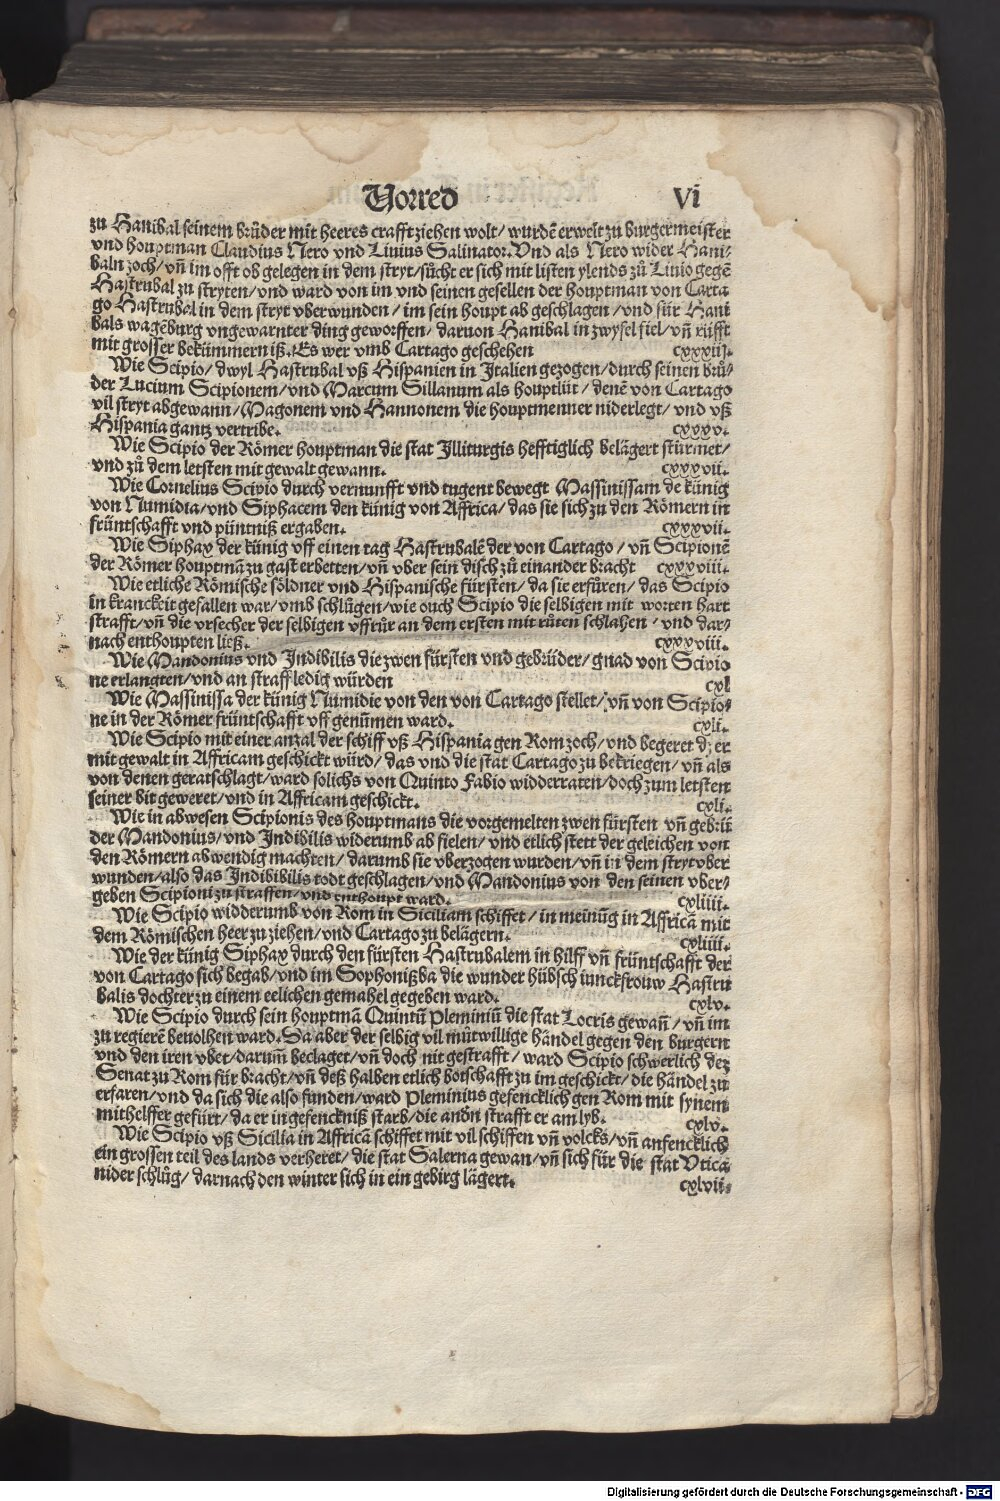 Vorred Vi
zu Hanibal seinem brůder mit heeres crafft ziehen wolt/ wurdē erwelt zu burgermeister
vnd houptman Claudius Nero vnd Liuius Salinator. Vnd als Nero wider Hani⸗
baln zoch/ vñ im offt ob gelegen in dem stryt/ sůcht er sich mit listen ylends zů Liuio gegē
Hastrubal zu stryten/ vnd ward von im vnd seinen gesellen der houptman von Carta
go Hastrubal in dem stryt vberwunden/ im sein houpt ab geschlagen/ vnd für Hani
bals wagēburg vngewarnter ding geworffen/ daruon Hanibal in zwyfel fiel/ vñ rüfft
mit grosser bekümmerniß. Es wer vmb Cartago geschehen cxxxiij.
Wie Scipio/ dwyl Hastrubal vß Hispanien in Italien gezogen/ durch seinen brů⸗
der Lucium Scipionem/ vnd Marcum Sillanum als houptlüt/ denē von Cartago
vil stryt abgewann/ Magonem vnd Hannonem die houptmenner niderlegt/ vnd vß
Hispania gantz vertribe. cxxxv.
Wie Scipio der Römer houptman die stat Illiturgis hefftiglich belägert stürmet/
vnd zů dem letsten mit gewalt gewann. cxxxvii.
Wie Cornelius Scipio durch vernunfft vnd tugent bewegt Massinissam dē künig
von Numidia/ vnd Siphacem den künig von Affrica/ das sie sich zu den Römern in
früntschafft vnd püntniß ergaben. cxxxvii.
Wie Siphax der künig vff einen tag Hastrubalē der von Cartago/ vñ Scipionē
der Römer houptmā zu gast erbetten/ vñ vber sein disch zů einander bracht cxxxviii.
Wie etliche Römische söldner vnd Hispanische fürsten/ da sie erfůren/ das Scipio
in kranckeit gefallen war/ vmb schlůgen/ wie ouch Scipio die selbigen mit worten hart
strafft/ vñ die vrsecher der selbigen vffrůr an dem ersten mit růten schlahen/ vnd dar⸗
nach enthoupten ließ. cxxxviii.
Wie Mandonius vnd Indibilis die zwen fürsten vnd gebrüder/ gnad von Scipio
ne erlangten/ vnd an straff ledig würden cxl
Wie Massinissa der künig Numidie von den von Cartago stellet/ vñ von Scipio⸗
ne in der Römer früntschafft vff genūmen ward. cxli.
Wie Scipio mit einer anzal der schiff vß Hispania gen Rom zoch/ vnd begeret dz er
mit gewalt in Affricam geschickt würd/ das vnd die stat Cartago zu bekriegen/ vñ als
von denen geratschlagt/ ward solichs von Quinto Fabio widderraten/ doch zum letsten
seiner bit geweret/ vnd in Affricam geschickt. cxli.
Wie in abwesen Scipionis des houptmans die vorgemelten zwen fürsten vñ gebrü
der Mandonius/ vnd Indibilis widerumb ab fielen/ vnd etlich stett der geleichen von
den Römern abwendig machten/ darumb sie vberzogen wurden/ vñ in dem stryt vber
wunden/ also das Indibibilis todt geschlagen/ vnd Mandonius von den seinen vber⸗
geben Scipioni zu straffen/ vnd enthoupt ward. cxliiii.
Wie Scipio widderumb von Rom in Siciliam schiffet/ in meinūg in Affricā mit
dem Römischen heer zu ziehen/ vnd Cartago zu belägern. cxliiii.
Wie der künig Siphax durch den fürsten Hastrubalem in hilff vñ früntschafft der
von Cartago sich begab/ vnd im Sophonißba die wunder hübsch iunckfrouw Hastru
balis dochter zu einem eelichen gemahel gegeben ward. cxlv.
Wie Scipio durch sein houptmā Quintū Pleminiū die stat Locris gewañ/ vñ im
zu regierē beuolhen ward. Da aber der selbig vil můtwillige händel gegen den burgern
vnd den iren vbet/ darum̄ beclaget/ vñ doch nit gestrafft/ ward Scipio schwerlich dez
Senat zu Rom für bracht/ vñ deß halben etlich botschafft zu im geschickt/ die händel zu
erfaren/ vnd da sich die also funden/ ward Pleminius gefencklich gen Rom mit synem
mithelffer gefürt/ da er in gefenckniß starb/ die andn̄ strafft er am lyb. cxlv.
Wie Scipio vß Sicilia in Affricā schiffet mit vil schiffen vñ volcks/ vñ anfencklich
ein grossen teil des lands verheret/ die stat Salerna gewan/ vñ sich für die stat Vtica
nider schlůg/ darnach den winter sich in ein gebirg lägert. cxlvii.
Digitalisierung gefördert durch die Deutsche Forschungsgemeinschaft - DFG